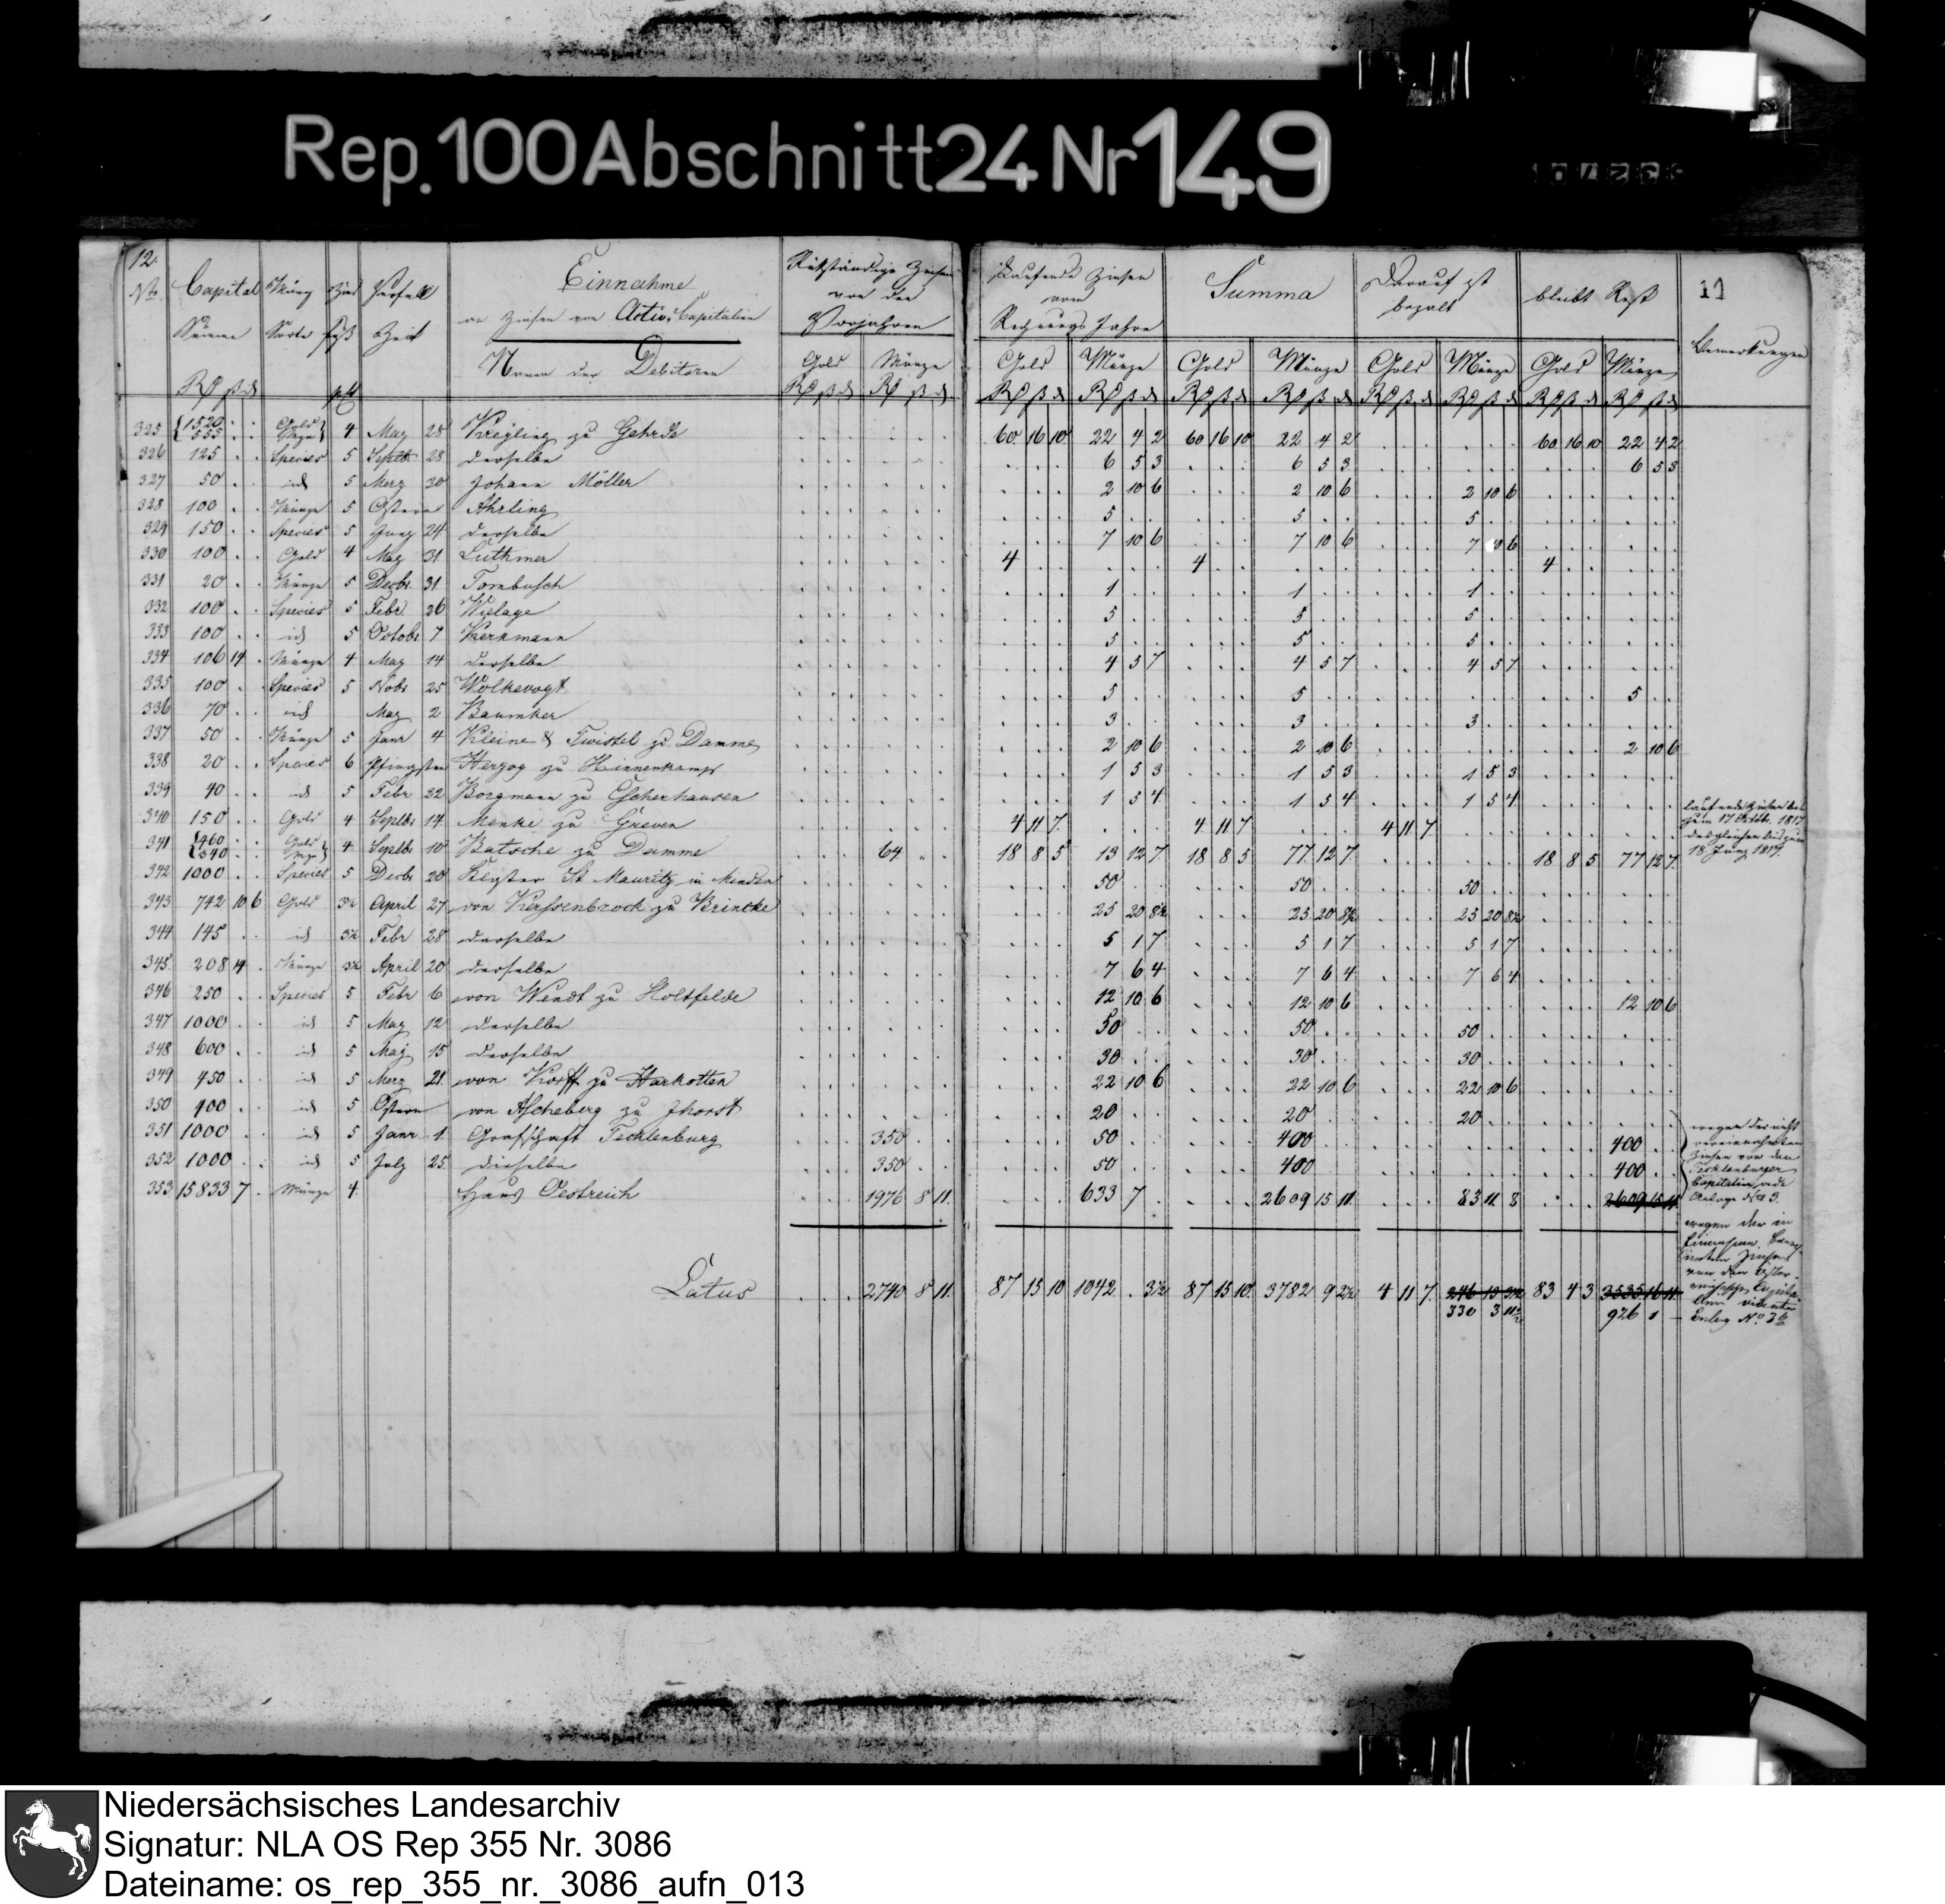 Rep. 100 Abschnitt 24 Nr 149
12.
No Capital Münz Zins Verfall Einnahme Rükständige Zinsen laufende Zinsen Summa Darauf ist bleibt Rest 11
Summe Sorte fuß Zeit an Zinsen von Activ-Capitalien von den Vorjahren vom Rechnungs Jahre bezalt Bemerkungen
Namen der Debitoren Gold Münze Gold Münze Gold Münze Gold Münze Gold Münze
325 {1520 . . Gold} 4 May 28 Kreyling zu Gehrde 60 16 10 22 4 2 60 16 10 22 4 2 60 16 10 22 4 2
{555 . . Mze}
326 125 . . Species 5 Septb 28 derselbe 6 5 3 6 5 3 6 5 3
327 50 . . id 5 Merz 30 Johann Möller 2 10 6 2 10 6 2 10 6
328 100 . . Münze 5 Ostern Ahrling 5 . . 5 . . 5 . .
329 150 . . Species 5 Juny 24 derselbe 7 10 6 7 10 6 7 10 6
330 100 . . Gold 4 May 31 Luthmer 4 . . 4 . . 4 . .
331 20 . . Münze 5 Decbr 31 Tombusch 1 . . 1 . . 1 . .
332 100 . . Species 5 Febr 26 Wielage 5 . . 5 . . 5 . .
333 100 . . id 5 Octobr 7 Kerkmann 5 . . 5 . . 5 . .
334 106 14 . Münze 4 May 14 derselbe 4 5 7 4 5 7 4 5 7
335 100 . . Species 5 Nobr 25 Wolkevogt 5 . . 5 . . 5 . .
336 70 . . id May 2 Baumker 3 . . 3 . . 3 . .
337 50 . . Münze 5 Janr 4 Kleine & Twistel zu Damme 2 10 6 2 10 6 2 10 6
338 20 . . Species 6 Pfingsten Herzog zu Hinnenkamp 1 5 3 1 5 3 1 5 3
339 40 . . id 5 Febr 22 Borgmann zu Escherhausen 1 5 4 1 5 4 1 5 4
340 150 . . Gold 4 Septbr 14 Menke zu Greven 4 11 7 4 11 7 4 11 7 laufende Zinsen bis zum 17 Octob. 1817
341 {460 . . Gold} 4 Septbr 10 Batsche zu Damme 64 . . 18 8 5 13 12 7 18 8 5 77 12 7 18 8 5 77 12 7 desgleichen bis zum 18. Juny 1817.
{340 . . Mze}
342 1000 . . Species 5 Decbr 20 Kloster St Mauritz in Minden 50 . . 50 . . 50 . .
343 742 10 6 Gold 3½ April 27 von Kerssenbrock zu Brincke 25 20 8½ 25 20 8½ 25 20 8½
344 145 . . id 3½ Febr 28 derselbe 5 1 7 5 1 7 5 1 7
345 208 14 . Münze 3½ April 20 derselbe 7 6 4 7 6 4 7 6 4
346 250 . . Species 5 Febr 6 von Wendt zu Holtfelde 12 10 6 12 10 6 12 10 6
347 1000 . . id 5 May 12 derselbe 50 . . 50 . . 50 . .
348 600 . . id 5 May 15 derselbe 30 . . 30 . . 30 . .
349 450 . . id 5 Merz 21 von Korff zu Harkotten 22 10 6 22 10 6 22 10 6
350 400 . . id 5 Ostern von Ascheberg zu Ihorst 20 . . 20 . . 20 . .
351 1000 . . id 5 Janr 1. Grafschaft Tecklenburg 350 . . 50 . . 400 . . 400 . .
352 1000 . . id 5 July 25 dieselbe 350 . . 50 . . 400 . . 400 . .
353 15833 7 . Münze 4. Haus Oestreich 1976 8 11. 633 7 . 2609 15 11. 83 11 8 2609 15 11
wegen der nicht
vereinnahmten
Zinsen von den
Tecklenburger
Capitalien vide
Anlage No 3.
wegen der in
Zinsen
von den Oster-
Latus 2740 8 11. 87 15 10 1042 . 3½ 87 15 10 3782 9 2½ 4 11 7 246 13 3½ 83 4 3 3535 16 11
330 3 11½ 926 1 —
Niedersächsisches Landesarchiv
Signatur: NLA OS Rep 355 Nr. 3086
Dateiname: os_rep_355_nr._3086_aufn_013